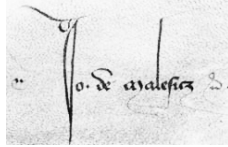 Jo. de Malesicz